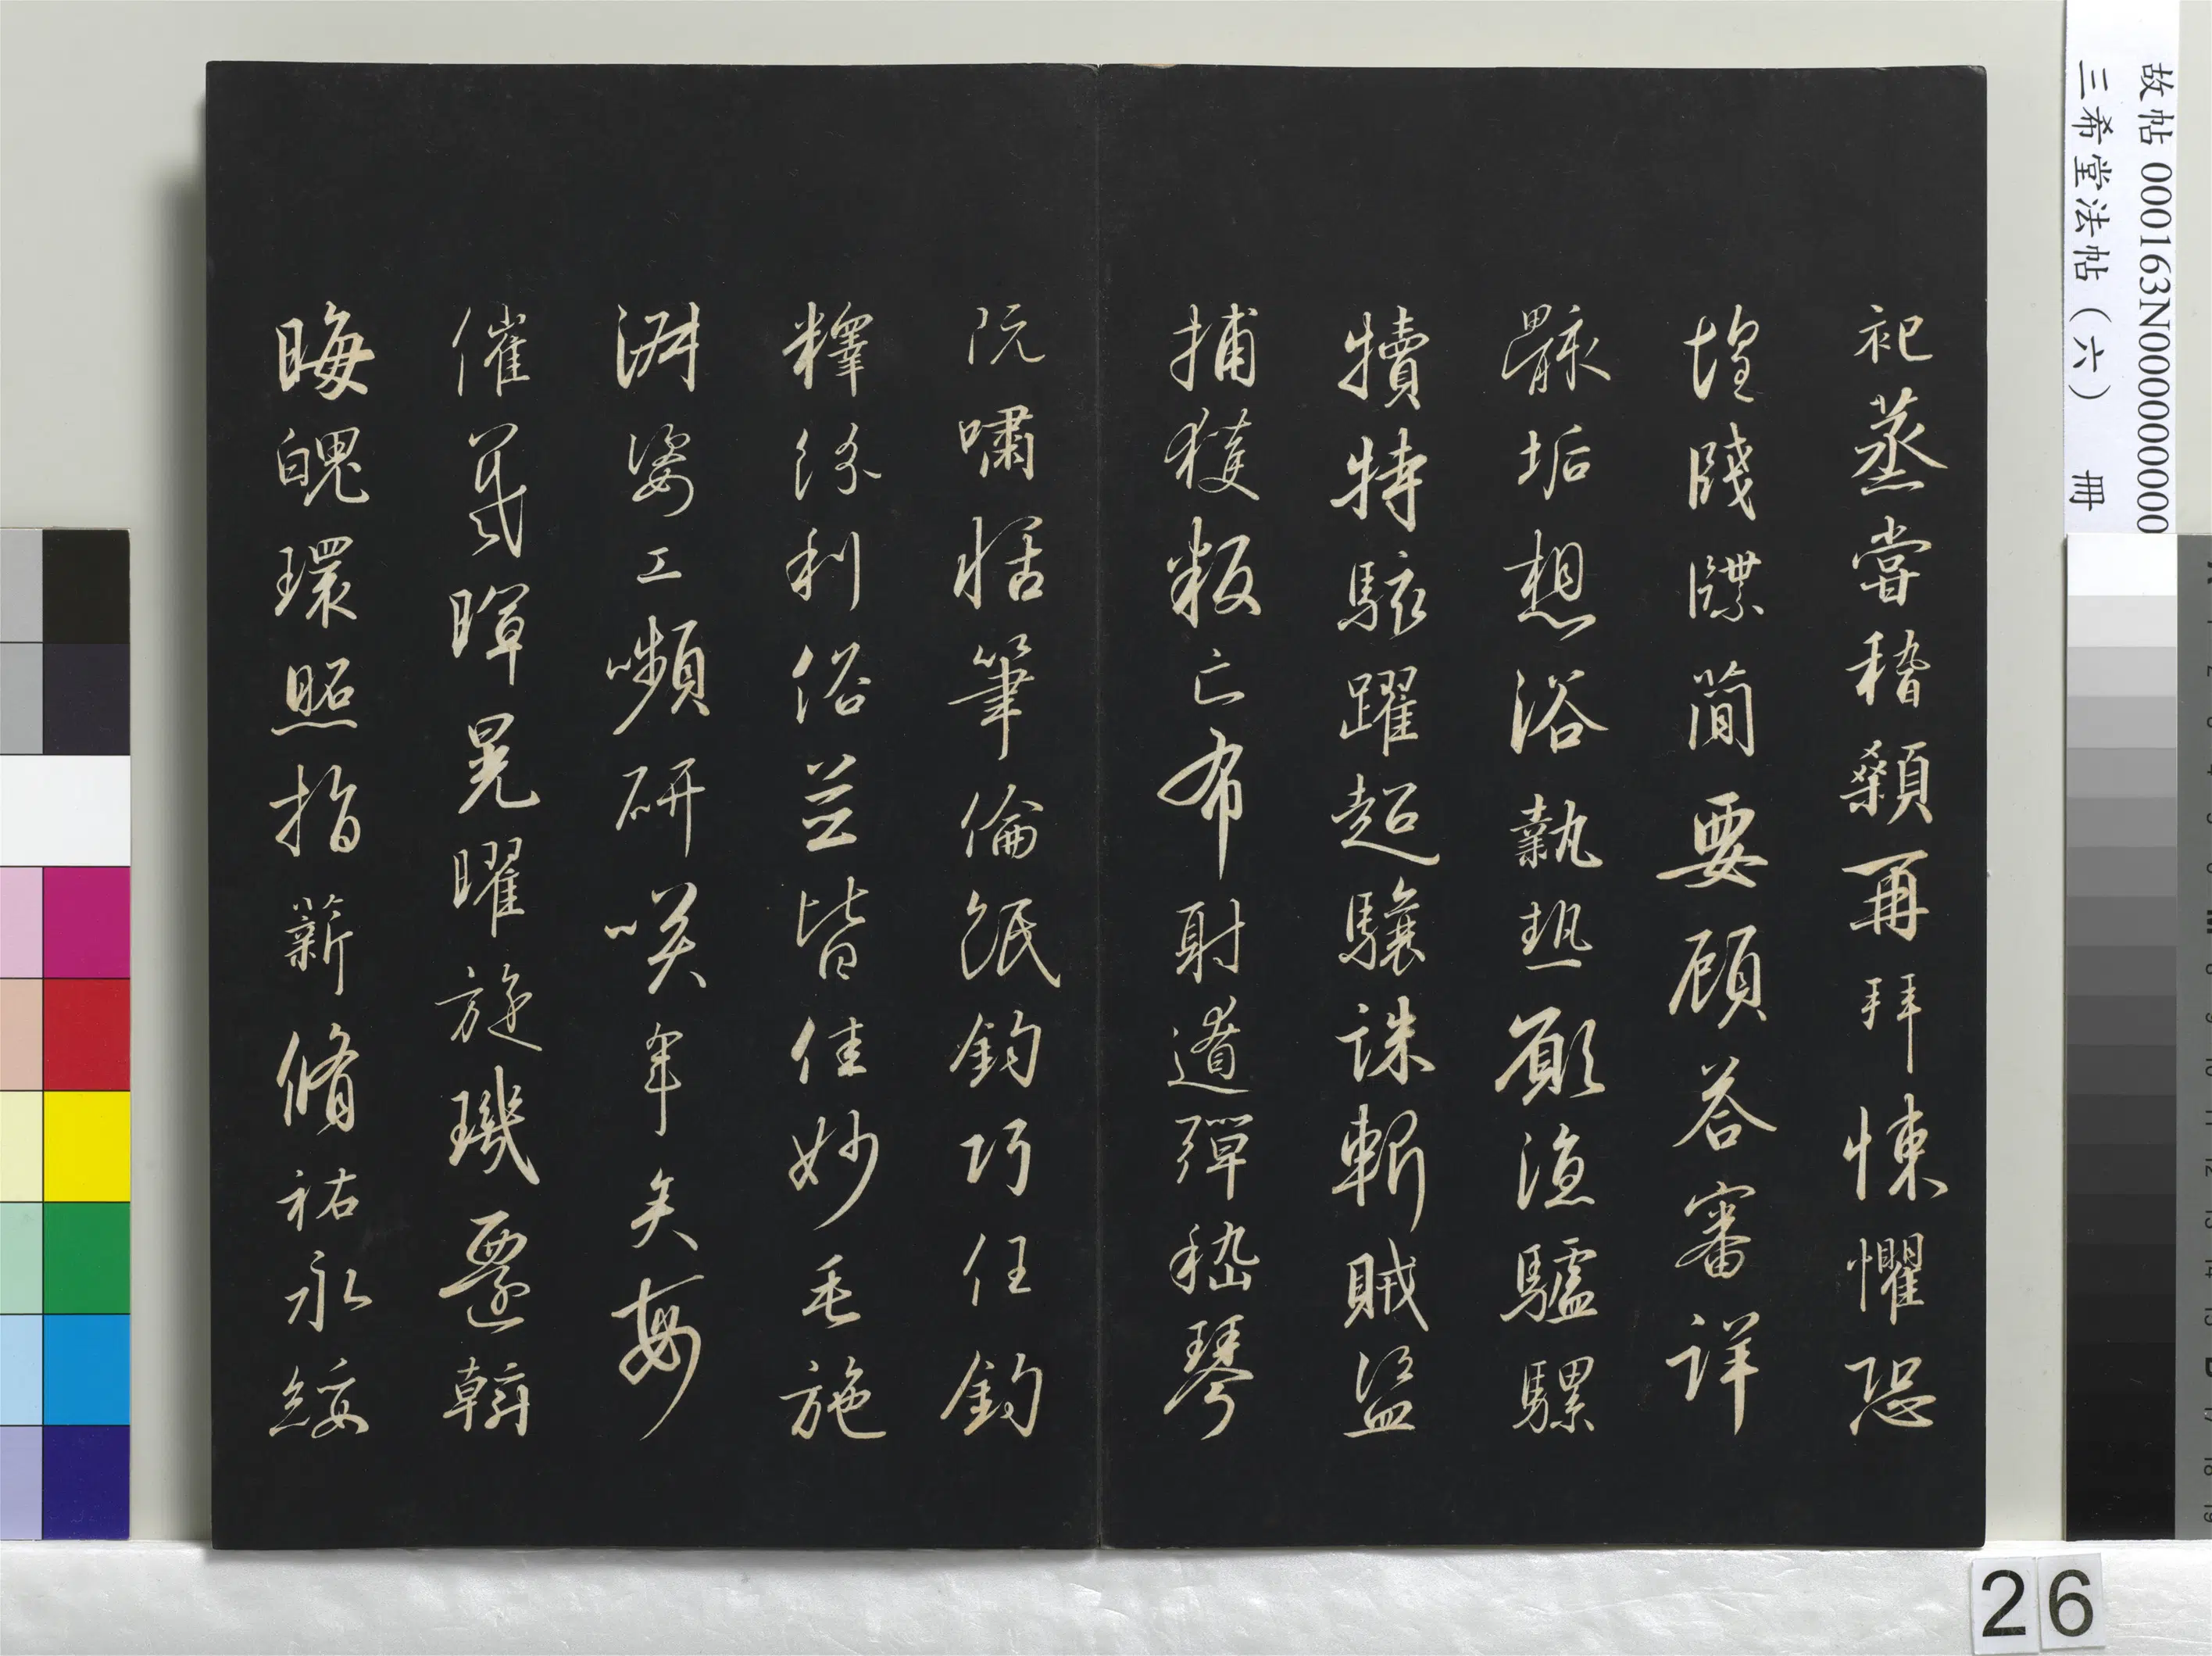 祀蒸嘗稽顙再拜悚懼恐
惶牋牒簡要顧荅審詳
骸垢想浴執熱願涼驢騾
犢特駭躍超驤誅斬賊盜
捕獲叛亡布射遼彈嵇琴
阮嘯恬筆倫紙鈞巧任釣
釋紛利俗並皆佳妙毛施
淑姿工嚬研咲年矢每
催羲暉晃曜旋璣懸斡
晦魄環照指薪脩祐永綏
故帖000163N000000000
三希堂法帖（六） 冊
26